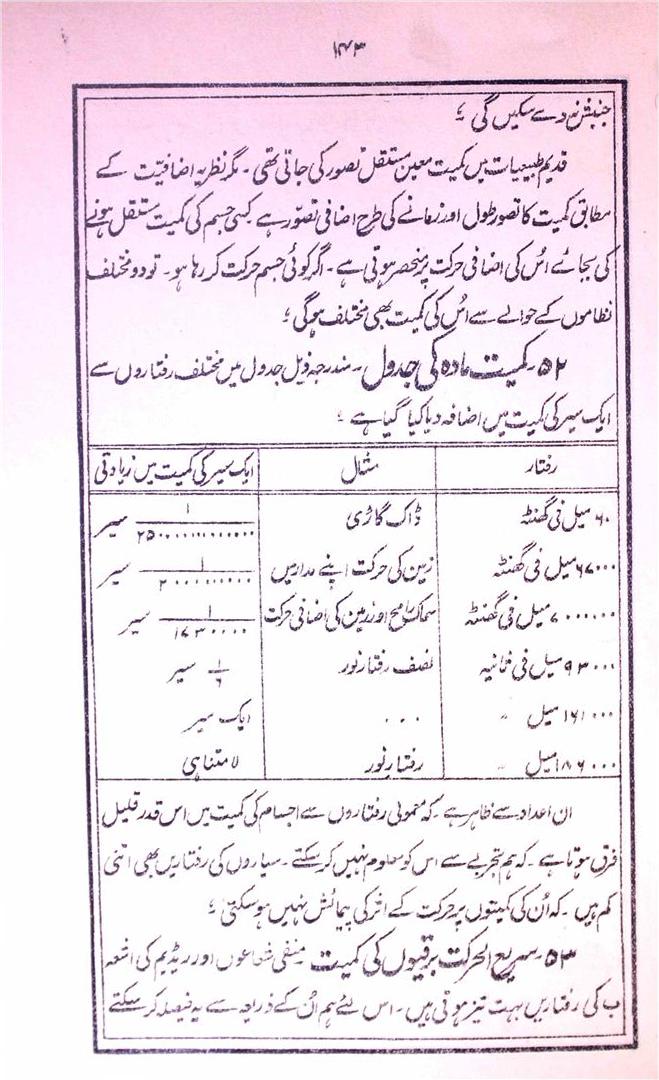 ۱۴۳
جنبش نہ دے سکیں گی ؛
قدیم طبیعیات میں کمیت معین مستقل تصور کی جاتی تھی ۔ مگر نظریہ اضافیّت کے
مطابق کمیت کا تصور طول اور زمانے کی طرح اضافی تصوّر ہے کسی جسم کی کمیت مستقل ہونے
کی بجائے اُس کی اضافی حرکت پر منحصر ہوتی ہے ۔ اگر کوئی جسم حرکت کر رہا ہو ۔ تو دو مختلف
نظاموں کے حوالے سے اُس کی کمیت بھی مختلف ہوگی ؛
۵۲ ۔ کمیت مادہ کی جدول ۔ مندرجہ ذیل جدول میں مختلف رفتاروں سے
ایک سیر کی کمیت میں اضافہ دیا گیا ہے ؛
رفتار مثال ایک سیر کی کمیت میں زیادتی
۶۰ میل فی گھنٹہ ڈاک گاڑی ۱ سیر
۶۷۰۰۰ میل فی گھنٹہ زمین کی حرکت اپنے مدار میں ۱ سیر
میل فی گھنٹہ سماک رامح اور زمین کی اضافی حرکت ۱ سیر
۹۳۰۰۰ میل فی ثانیہ نصف رفتار نور ۱/۶ سیر
۱۶۱۰۰۰ میل 〃 ۰۰۰ ایک سیر
۱۸۶۰۰۰ میل 〃 رفتار نور لا متناہی
ان اعداد سے ظاہر ہے ۔ کہ معمولی رفتاروں سے اجسام کی کمیت میں اس قدر قلیل
فرق ہوتا ہے ۔ کہ ہم تجربے سے اس کو معلوم نہیں کر سکتے ۔ سیاروں کی رفتاریں بھی اتنی
کم ہیں ۔ کہ اُن کی کمیتوں پر حرکت کے اثر کی پیمائش نہیں ہو سکتی ؛
۵۳ ۔ سریع الحرکت برقیوں کی کمیت منفی شعاعوں اور ریڈیم کی اشعہ
ب کی رفتاریں بہت تیز ہوتی ہیں ۔ اس لئے ہم اُن کے ذریعہ سے یہ فیصلہ کر سکتے